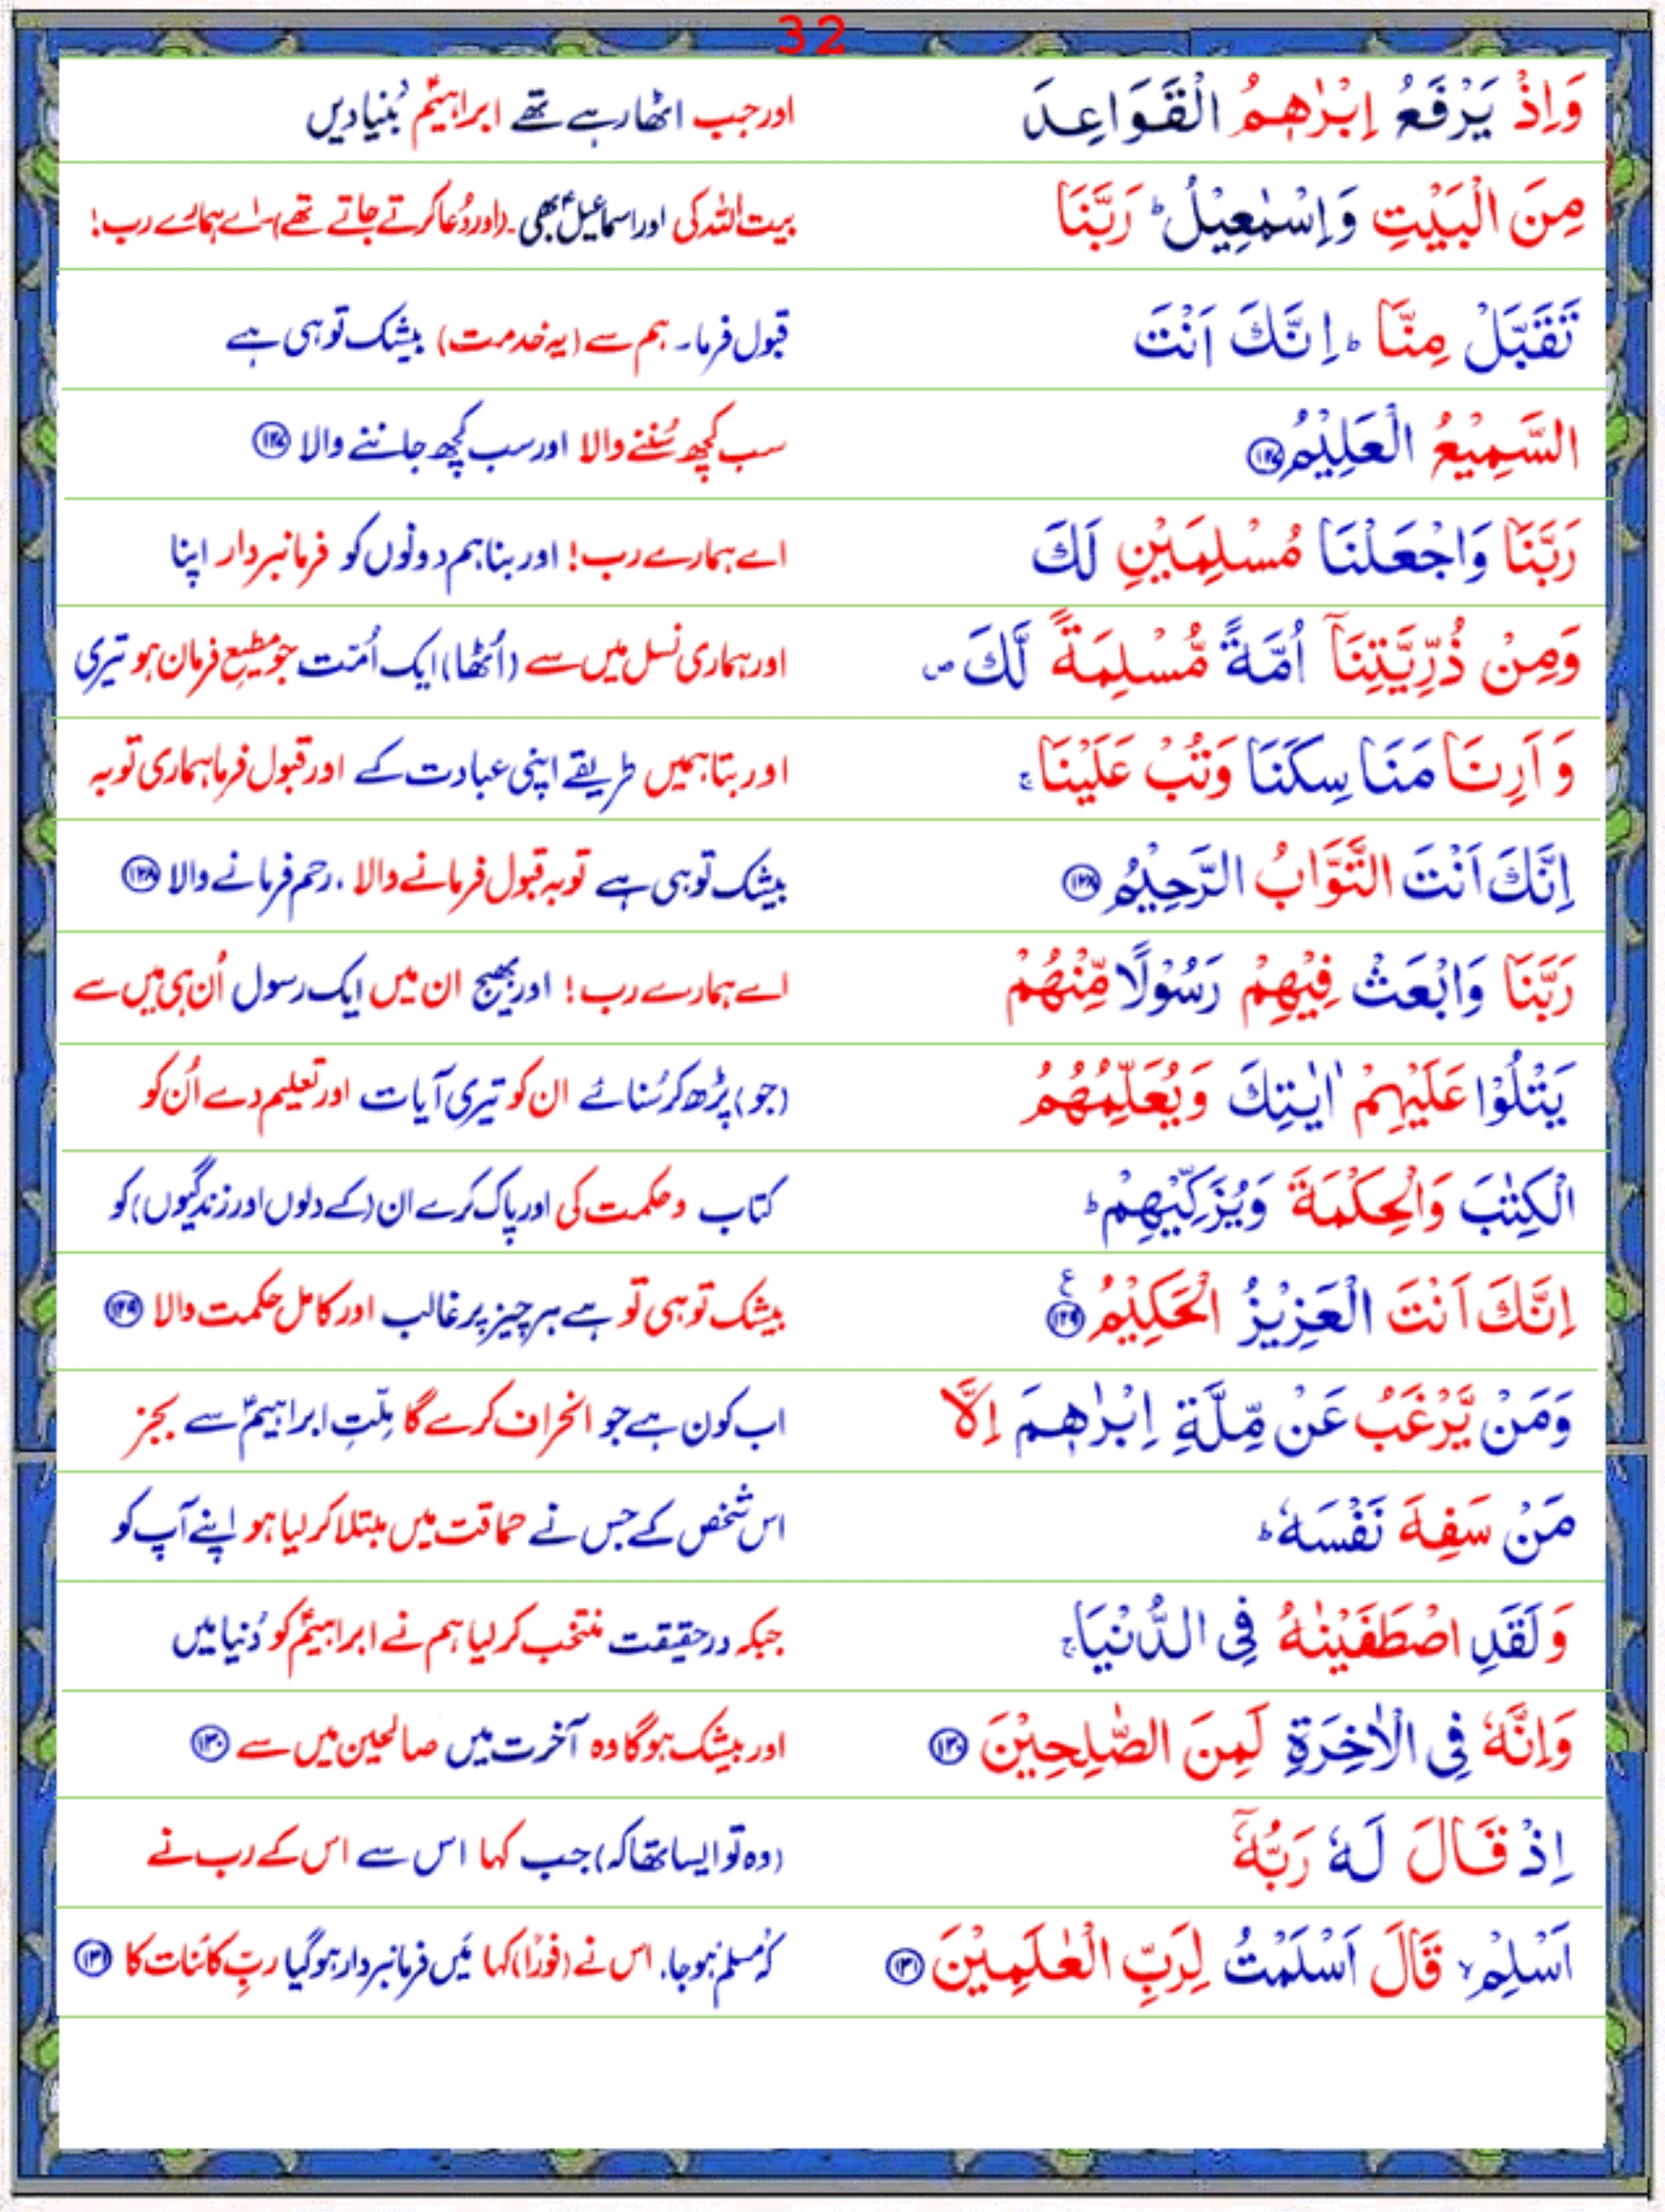 32
وَاِذْ يَرْفَعُ اِبْرٰهٖمُ الْقَوَاعِدَ اور جب اٹھا رہے تھے ابراہیمؑ بُنیادیں
مِنَ الْبَيْتِ وَاِسْمٰعِيْلُ ؕ رَبَّنَا بیت اللہ کی اور اسماعیلؑ بھی۔ (اور دُعا کرتے جاتے تھے) اے ہمارے رب!
تَقَبَّلْ مِنَّا ؕ اِنَّكَ اَنْتَ قبول فرما۔ ہم سے (یہ خدمت) بیشک تو ہی ہے
السَّمِيْعُ الْعَلِيْمُ ﴿۱۲۷﴾ سب کچھ سُننے والا اور سب کچھ جاننے والا ﴿۱۲۷﴾
رَبَّنَا وَاجْعَلْنَا مُسْلِمَيْنِ لَكَ اے ہمارے رب! اور بنا ہم دونوں کو فرمانبردار اپنا
وَمِنْ ذُرِّيَّتِنَاۤ اُمَّةً مُّسْلِمَةً لَّكَ ص اور ہماری نسل میں سے (اُٹھا) ایک اُمّت جو مطیعِ فرمان ہو تیری
وَاَرِنَا مَنَاسِكَنَا وَتُبْ عَلَيْنَا ۚ اور بتا ہمیں طریقے اپنی عبادت کے اور قبول فرما ہماری توبہ
اِنَّكَ اَنْتَ التَّوَّابُ الرَّحِيْمُ ﴿۱۲۸﴾ بیشک تو ہی ہے توبہ قبول فرمانے والا ، رحم فرمانے والا ﴿۱۲۸﴾
رَبَّنَا وَابْعَثْ فِيْهِمْ رَسُوْلًا مِّنْهُمْ اے ہمارے رب! اور بھیج ان میں ایک رسول اُن ہی میں سے
يَتْلُوْا عَلَيْهِمْ اٰيٰتِكَ وَيُعَلِّمُهُمُ (جو) پڑھ کر سُنائے ان کو تیری آیات اور تعلیم دے اُن کو
الْكِتٰبَ وَالْحِكْمَةَ وَيُزَكِّيْهِمْ ؕ کتاب و حکمت کی اور پاک کرے ان (کے دلوں اور زندگیوں) کو
اِنَّكَ اَنْتَ الْعَزِيْزُ الْحَكِيْمُ ﴿۱۲۹﴾ ع بیشک تو ہی تو ہے ہر چیز پر غالب اور کامل حکمت والا ﴿۱۲۹﴾
وَمَنْ يَّرْغَبُ عَنْ مِّلَّةِ اِبْرٰهٖمَ اِلَّا اب کون ہے جو انحراف کرے گا مِلّتِ ابراہیمؑ سے بجز
مَنْ سَفِهَ نَفْسَهٗ ؕ اس شخص کے جس نے حماقت میں مبتلا کر لیا ہو اپنے آپ کو
وَلَقَدِ اصْطَفَيْنٰهُ فِى الدُّنْيَا ۚ جبکہ درحقیقت منتخب کر لیا ہم نے ابراہیمؑ کو دُنیا میں
وَاِنَّهٗ فِى الْاٰخِرَةِ لَمِنَ الصّٰلِحِيْنَ ﴿۱۳۰﴾ اور بیشک ہو گا وہ آخرت میں صالحین میں سے ﴿۱۳۰﴾
اِذْ قَالَ لَهٗ رَبُّهٗۤ (وہ تو ایسا تھا کہ) جب کہا اس سے اس کے رب نے
اَسْلِمْ ۙ قَالَ اَسْلَمْتُ لِرَبِّ الْعٰلَمِيْنَ ﴿۱۳۱﴾ کہ مسلم ہو جا، اس نے (فوراً) کہا میں فرمانبردار ہو گیا ربِّ کائنات کا ﴿۱۳۱﴾